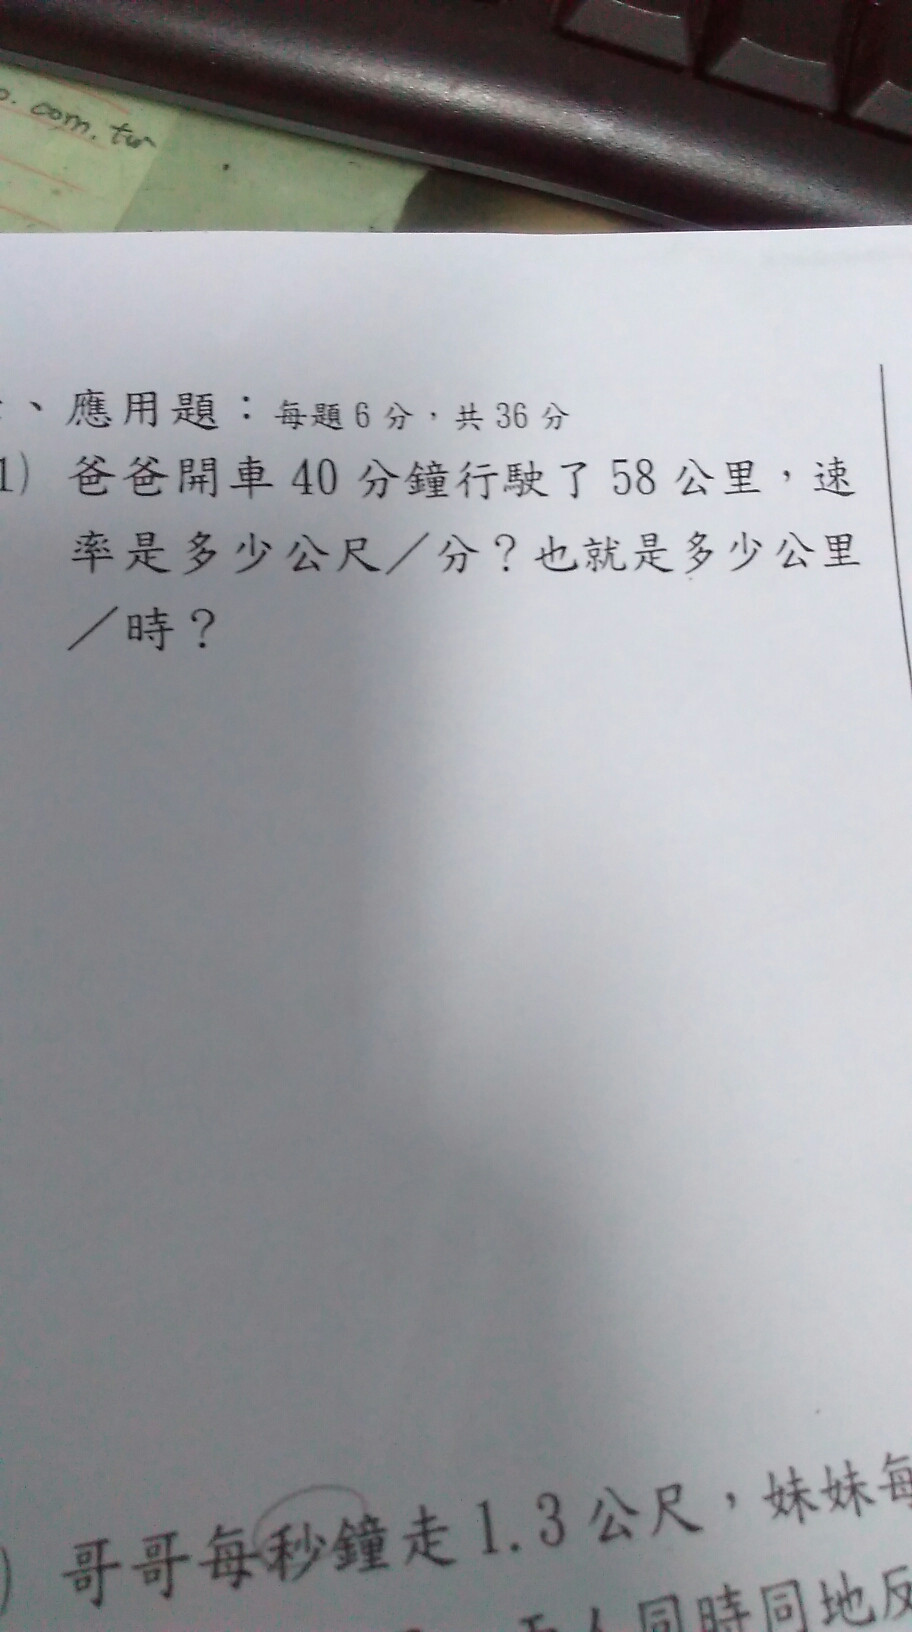 com.tw
、應用題：每題6分，共36分
1) 爸爸開車40分鐘行駛了58公里，速
率是多少公尺／分？也就是多少公里
／時？
) 哥哥每秒鐘走1.3公尺，妹妹每
人同時同地反